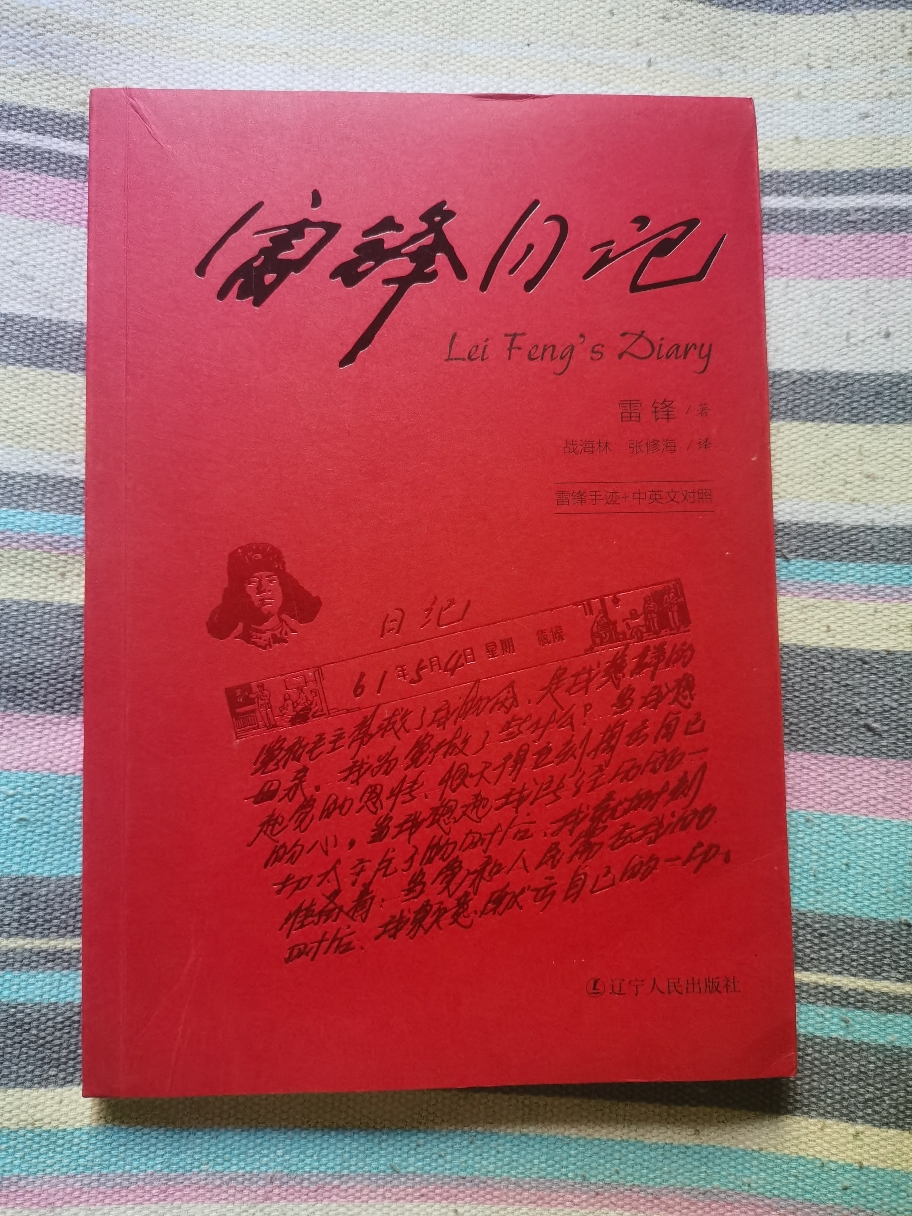 雷锋日记
Lei Feng's Diary
雷锋/著
战海林 张修海/译
雷锋手迹+中英文对照
日记
61年5月4日 星期 气候
党和毛主席救了我的命、是我慈祥的
母亲。我为党做了些什么?当我想
起党的恩情、恨不得立刻掏出自己
的心。当我想起我所经历的一
切太平凡了的时候、我就时刻
准备着:当党和人民需要我的
时候、我愿意献出自己的一切。
辽宁人民出版社